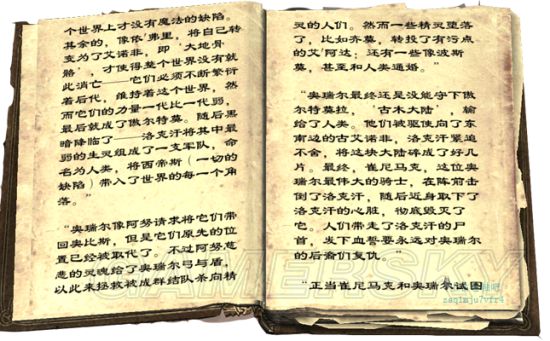 个世界上才没有魔法的缺陷。
其余的，像依‘弗里，将自己转
变为了艾诺非，即‘大地骨
骼’，才使得整个世界没有就
此消亡——它们必须不断繁衍
着后代，维持着这个世界，然
而它们的力量一代比一代弱，
最后就成了傲尔特莫。随后黑
暗降临了——洛克汗将其中最
弱的生灵组成了一支军队，命
名为人类，将西帝斯（一切的
缺陷）带入了世界的每一个角
落。”
“奥瑞尔像阿努请求将它们带
回奥比斯，但是它们原先的位
置已经被取代了。不过阿努慈
悲的灵魂给了奥瑞尔弓与盾，
以此来拯救被成群结队杀向精
灵的人们。然而一些精灵堕落
了，比如齐蔓，转投了有污点
的艾‘阿达；还有一些像波斯
蔓，甚至和人类通婚。”
“奥瑞尔最终还是没能守下傲
尔特莫拉，‘古木大陆’，输
给了人类。他们被驱使向了东
南边的古艾诺非，洛克汗紧追
不舍，将这块大陆碎成了好几
片。最终，崔尼马克，这位奥
瑞尔最伟大的骑士，在阵前击
倒了洛克汗，随后近身取下了
洛克汗的心脏，彻底毁灭了
它。人们带走了洛克汗的尸
首，发下血誓要永远对奥瑞尔
的后裔们复仇。”
“正当崔尼马克和奥瑞尔试图
GAMERSKY
zaq1mju7vfr4